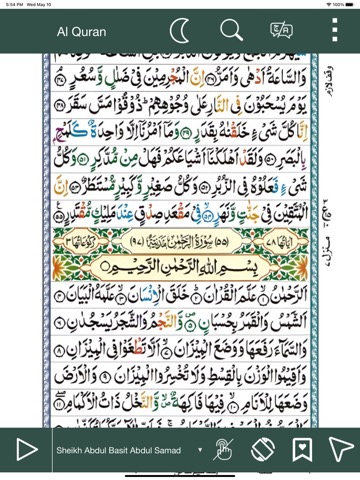 5:54 PM Wed May 10
100%
Al Quran
وَالسَّاعَةُ اَدْهٰى وَاَمَرُّ ﴿۴۶﴾ اِنَّ الْمُجْرِمِيْنَ فِيْ ضَلٰلٍ وَّسُعُرٍ ﴿۴۷﴾
يَوْمَ يُسْحَبُوْنَ فِي النَّارِ عَلٰى وُجُوْهِهِمْ ؕ ذُوْقُوْا مَسَّ سَقَرَ ﴿۴۸﴾
اِنَّا كُلَّ شَيْءٍ خَلَقْنٰهُ بِقَدَرٍ ﴿۴۹﴾ وَمَاۤ اَمْرُنَاۤ اِلَّا وَاحِدَةٌ كَلَمْحٍۭ
بِالْبَصَرِ ﴿۵۰﴾ وَلَقَدْ اَهْلَكْنَاۤ اَشْيَاعَكُمْ فَهَلْ مِنْ مُّدَّكِرٍ ﴿۵۱﴾ وَكُلُّ
شَيْءٍ فَعَلُوْهُ فِي الزُّبُرِ ﴿۵۲﴾ وَكُلُّ صَغِيْرٍ وَّكَبِيْرٍ مُّسْتَطَرٌ ﴿۵۳﴾ اِنَّ
الْمُتَّقِيْنَ فِيْ جَنّٰتٍ وَّنَهَرٍ ﴿۵۴﴾ فِيْ مَقْعَدِ صِدْقٍ عِنْدَ مَلِيْكٍ مُّقْتَدِرٍ ﴿۵۵﴾
اٰيَاتُهَا ۷۸ (۵۵) سُوْرَةُ الرَّحْمٰنِ مَدَنِيَّةٌ (۹۷) رُكُوْعَاتُهَا ۳
بِسْمِ اللّٰهِ الرَّحْمٰنِ الرَّحِيْمِ
اَلرَّحْمٰنُ ﴿۱﴾ عَلَّمَ الْقُرْاٰنَ ﴿۲﴾ خَلَقَ الْاِنْسَانَ ﴿۳﴾ عَلَّمَهُ الْبَيَانَ ﴿۴﴾
اَلشَّمْسُ وَالْقَمَرُ بِحُسْبَانٍ ﴿۵﴾ وَّالنَّجْمُ وَالشَّجَرُ يَسْجُدٰنِ ﴿۶﴾
وَالسَّمَآءَ رَفَعَهَا وَوَضَعَ الْمِيْزَانَ ﴿۷﴾ اَلَّا تَطْغَوْا فِي الْمِيْزَانِ ﴿۸﴾
وَاَقِيْمُوا الْوَزْنَ بِالْقِسْطِ وَلَا تُخْسِرُوا الْمِيْزَانَ ﴿۹﴾ وَالْاَرْضَ
وَضَعَهَا لِلْاَنَامِ ﴿۱۰﴾ فِيْهَا فَاكِهَةٌ وَّالنَّخْلُ ذَاتُ الْاَكْمَامِ ﴿۱۱﴾
وقف لازم
منزل ۷
Sheikh Abdul Basit Abdul Samad